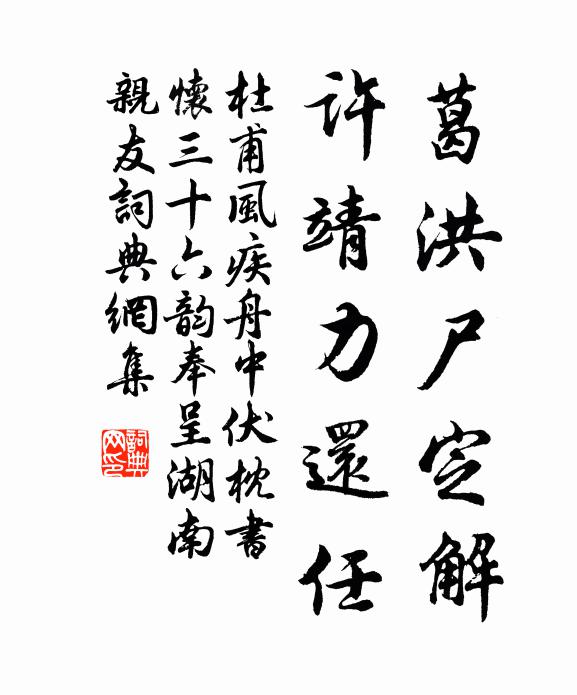 葛洪尸定解
許靖力還任
杜甫風疾舟中伏枕書
懷三十六韵奉呈湖南
親友詞典網集
詞典网印